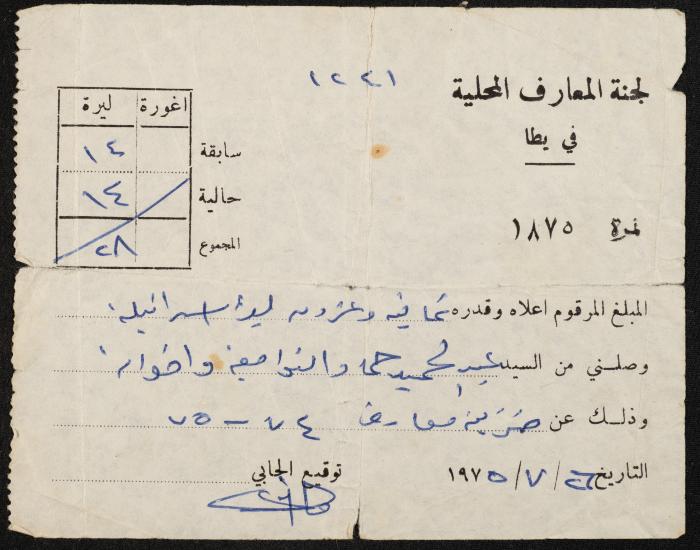 ١٢٢١
لجنة المعارف المحلية
في يطا
نمرة ١٨٧٥
اغورة ليرة
سابقة ١٤
حالية ١٤
المجموع ٢٨
المبلغ المرقوم اعلاه وقدره ثمانية وعشرون ليرة اسرائيلية
وصلني من السيد عبد الحميد واخوانه
وذلك عن ضريبة معارف ٧٤ - ٧٥
التاريخ ٢٦/٧/١٩٧٥
توقيع الجابي